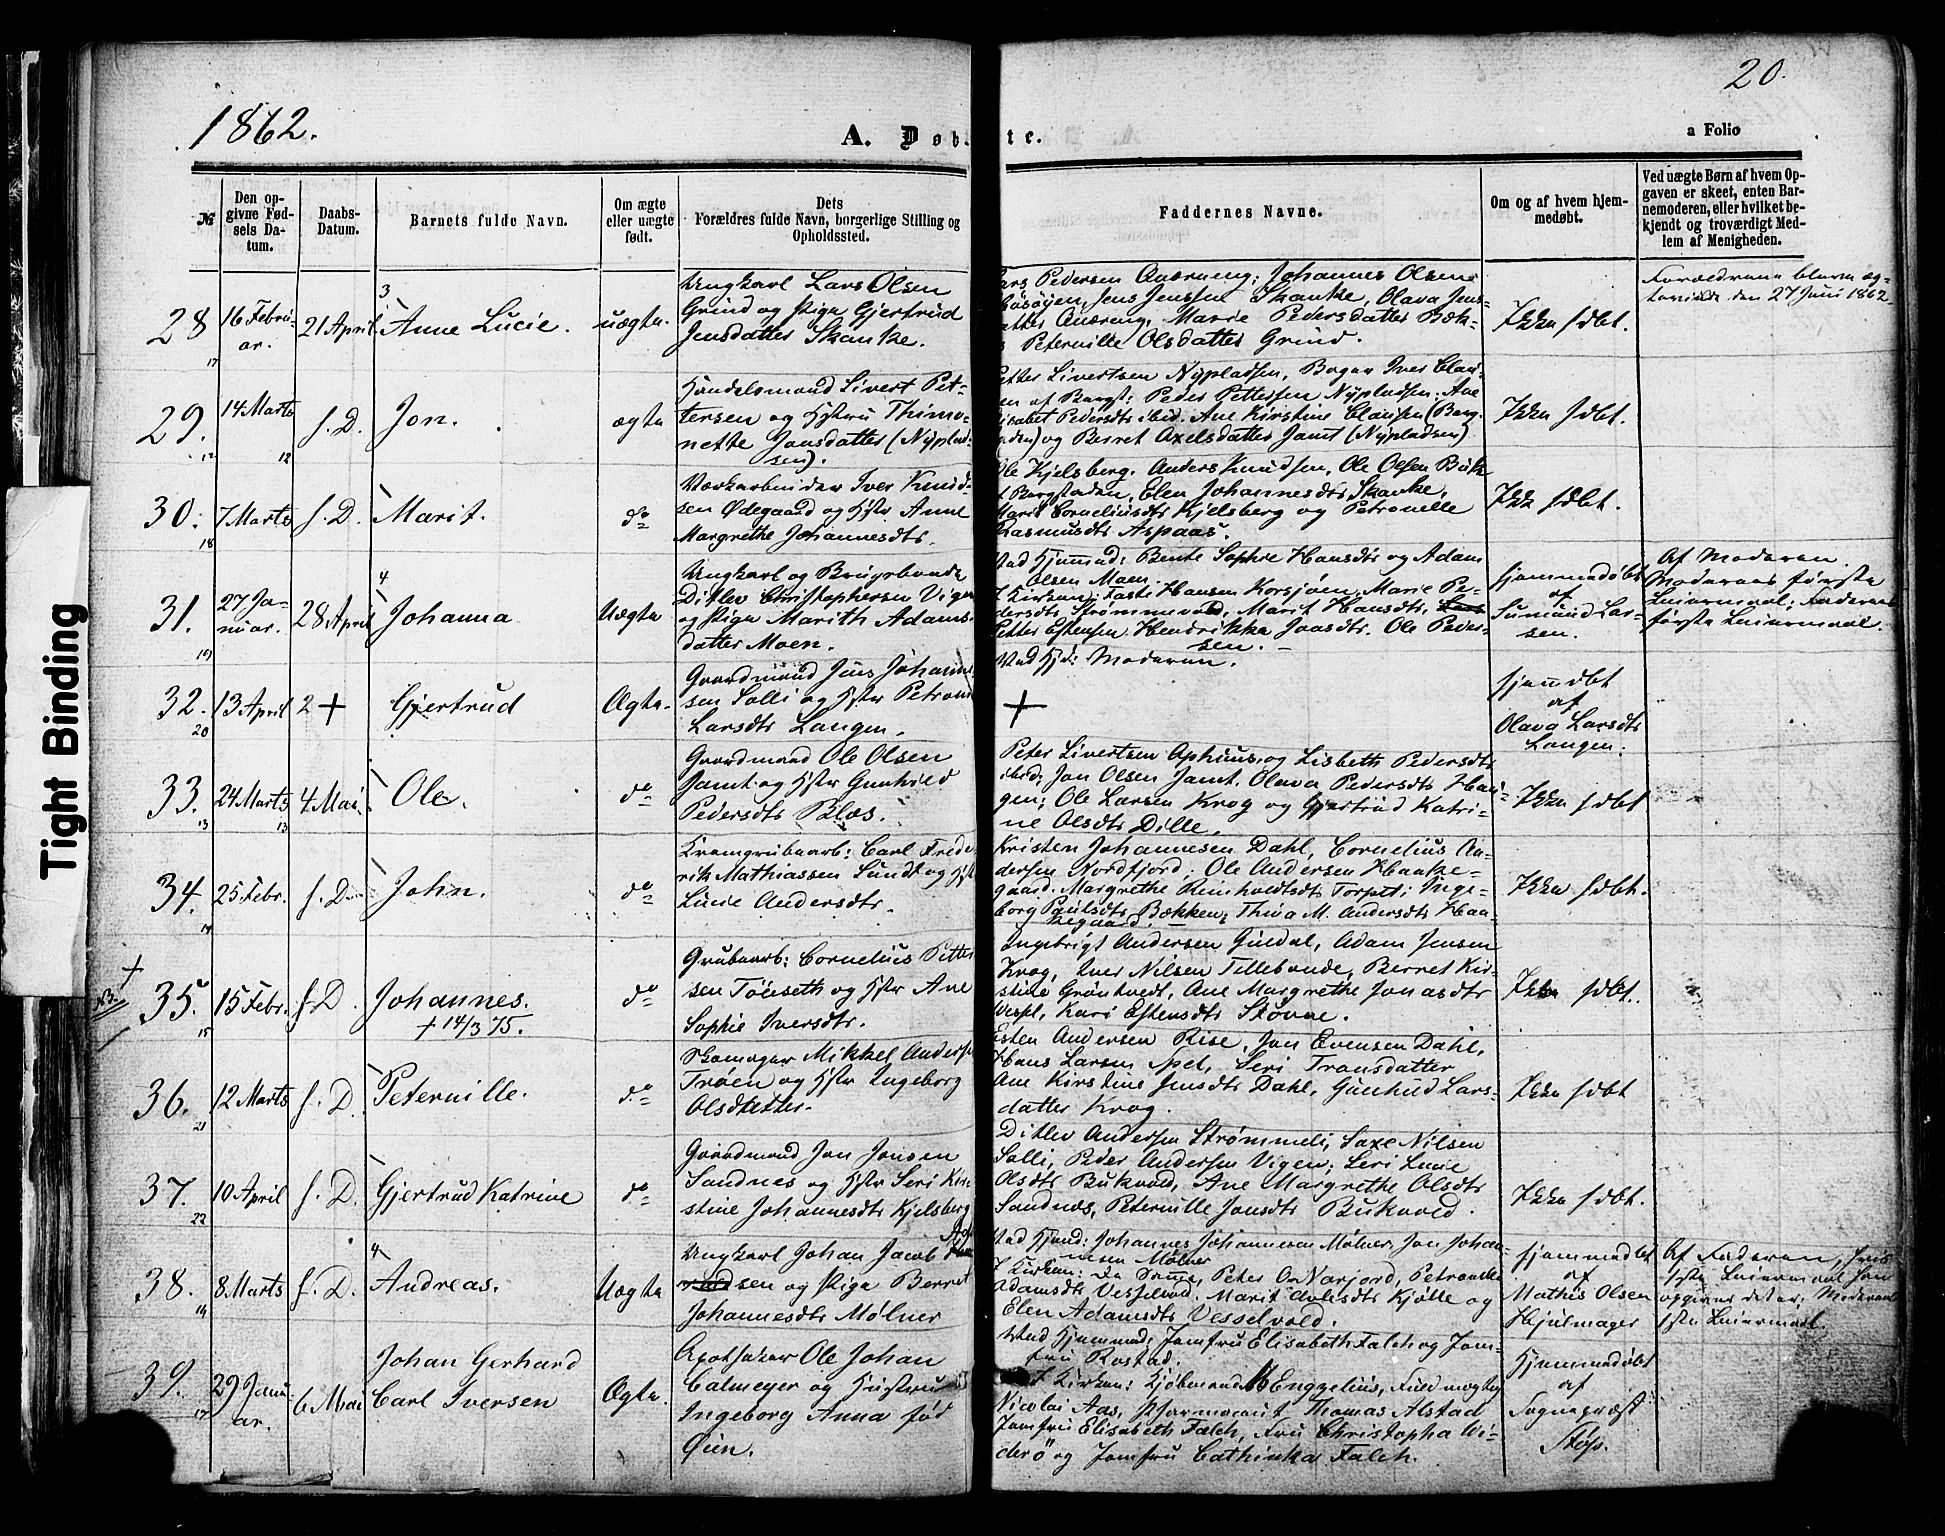 1862.
A. Døb-
te.
20.
a Folio
№
Den op-
givne Fød-
sels Da-
tum.
Daabs-
Datum.
Barnets fulde Navn.
Om ægte
eller uægte
født.
Dets
Forældres fulde Navn, borgerlige Stilling og
Opholdssted.
Faddernes Navne.
Om og af hvem hjem-
medøbt.
Ved uægte Børn af hvem Op-
gaven er skeet, enten Bar-
nemoderen, eller hvilket be-
kjendt og troværdigt Med-
lem af Menigheden.
28
17
16 Febru-
ar.
21 April
3
Anne Lucie.
uægte.
Ungkarl Lars Olsen
Grind og Pige Gjertrud
Jensdatter Skanke.
Lars Pedersen Aaræng; Johannes Olsen
Jens Jenssen Skanke, Olava Jens-
datter Aaræng, Marie Pedersdatter Bæk-
Peterville Olsdatter Grind.
Ikke hdbt.
Forældrene bleve æg-
teviede den 27 Juni 1862.
29.
12
14 Marts
12
s. D.
Jon.
ægte
Handelsmand Sivert Pet-
tersen og Hstru Thimo-
nette Jonsdatter (Nyplad-
sen).
Petter Sivertsen Nypladsen, Iver Clau-
sen af Bergst: Peder Pettersen Nypladsen. Ane
Lisabet Pedersdt ibid. Ane Kirstine Clausen (Berg-
staden) og Berret Axelsdatter Jamt (Nypladsen)
Ikke hdbt.
30.
18
7 Marts
s. D.
Marit.
do
Værkarbeider Iver Knud-
sen Ødegaard og Hstr Anne
Margrethe Johannesdtr.
Ole Kjelsberg. Anders Knudsen, Ole Olsen Buk
af Bergstaden, Elen Johannesdtr Skanke,
Marit Corneliusdtr Kjelsberg og Petronelle
Rasmusdtr Aspaas.
Ikke hdbt.
31.
19
27 Ja-
nuar.
28 April
4
Johanna
Uægte
Ungkarl og Brugsbonde
Ditlev Christophersen Vigen
og Pige Marith Adams-
datter Moen.
Ved Hjemmed: Bente Sophie Hansdtr og Adam
Olsen Moen.
I Kirken: Taste Hansen Korsjøen, Marie Pe-
dersdtr Strømmevold, Marit Hansdtr,
Petter Estensen Hendrikka Jonsdtr. Ole Peder-
sen.
hjemmedøbt
af
Sumund Lar-
sen.
Af Moderen.
Moderens første
Leiermaal; Faderens
første Leiermaal.
32.
20
13 April
2 +
Gjertrud
Ægte.
Gaardmand Jens Johanne-
sen Solli og Hstr Petronel
Larsdtr Langen.
Ved Hjd: Moderen.
+
hjemdbt
af
Olava Larsdtr
Langen.
33.
13
24 Marts
13
4 Mai.
Ole.
do
Gaardmand Ole Olsen
Jamt og Hstr Gunhild
Pedersdtr Blæs.
Peter Sivertsen Aphuus og Lisbeth Pedersdtr
ibid; Jon Olsen Jamt. Olava Pedersdtr Hau-
gen; Ole Larsen Krog og Gjertrud Katri-
ne Olsdtr Dille.
Ikke hdbt
34.
14
25 Febr.
s. D.
John.
do
Kromgrubearb: Carl Frede-
rik Mathiassen Sundt og Hst
Lucie Andersdtr.
Kristen Johannesen Dahl, Cornelius An-
dersen Nordfjord; Ole Andersen Haake-
gaard. Margrethe Reinholdtsdtr Torpet; Inge-
borg Paulsdtr Bækken; Thea M. Andersdtr Haa-
kegaard.
Ikke hdbt.
+
NB.
35.
15
15 Febr.
s. D.
Johannes.
+ 14/3 75.
do
Grubearb: Cornelius Petter
sen Tøiseth og Hstr Ane
Sophie Iversdtr.
Ingebrigt Andersen Guldal, Adam Jensen
Krog, Iver Nilsen Tillebonde, Berret Kir-
stine Grøntvedt, Ane Margrethe Jonasdtr
Vespl, Kari Estensdtr Støvne.
Ikke hdbt.
36.
21
12 Marts
s. D.
Peternille.
do
Skomager Mikkel Anders
Trøen og Hstr Ingeborg
Olsdtetter.
Esten Andersen Rise, Jon Evensen Dahl,
Hans Larsen Spel, Seri Tronsdatter
Ane Kirstine Jensdtr Dahl, Gunhild Lars-
datter Krog.
Ikke hdbt
37.
22
10 April
s. D.
Gjertrud Katrine
do
Gaardmand Jon Jonsen
Sandnes og Hstr Seri Kir-
stine Johannesdtr Kjelsberg
Ditlev Andersen Strømmeli, Saxe Nilsen
Solli, Peder Andersen Vigen; Seri Lucie
Olsdtr Bukvold, Ane Margrethe Olsdtr
Sandnæs, Peternille Jonsdtr Bukvold.
Ikke hdbt.
38.
16
8 Marts
s. D.
4
Andreas.
Uægte
Ungkarl Johan Jacob
sen og Pige Berret
Johannesdtr Mølner
Ved Hjemd: Johannes Johannesen Mølner, Jon Johan-
nesen Mølner
I Kirken: De Samme, Peter O. Narjord, Petronelle
Adamsdtr Vesselvold. Marit Kjølle og
Elen Adamsdtr Vesselvold.
hjemmedbt
af
Mathis Olsen
Hjulmager
Af Faderen, hvis
1ste Leiermaal han
opgiver det er; Moderens
1ste Leiermaal.
39.
17
29 Janu-
ar.
6 Mai
Johan Gerhard
Carl Iversen
Ægte.
Apotheker Ole Johan
Calmeyer og Hustru
Ingeborg Anna fød
Øien.
Ved Hjemmed: Jomfru Elisabeth Falch og Jom-
fru Rostad.
I Kirken: Kjøbmand Engzelius, Fuldmægtig
Nicolai Aas, Pharmaceut Thomas Alstad
Jomfru Elisabeth Falch, Fru Christopha Wi-
derö og Jomfru Cathinka Falch.
Hjemmedøbt
af
Sognepræst
Støp.
Tight Binding